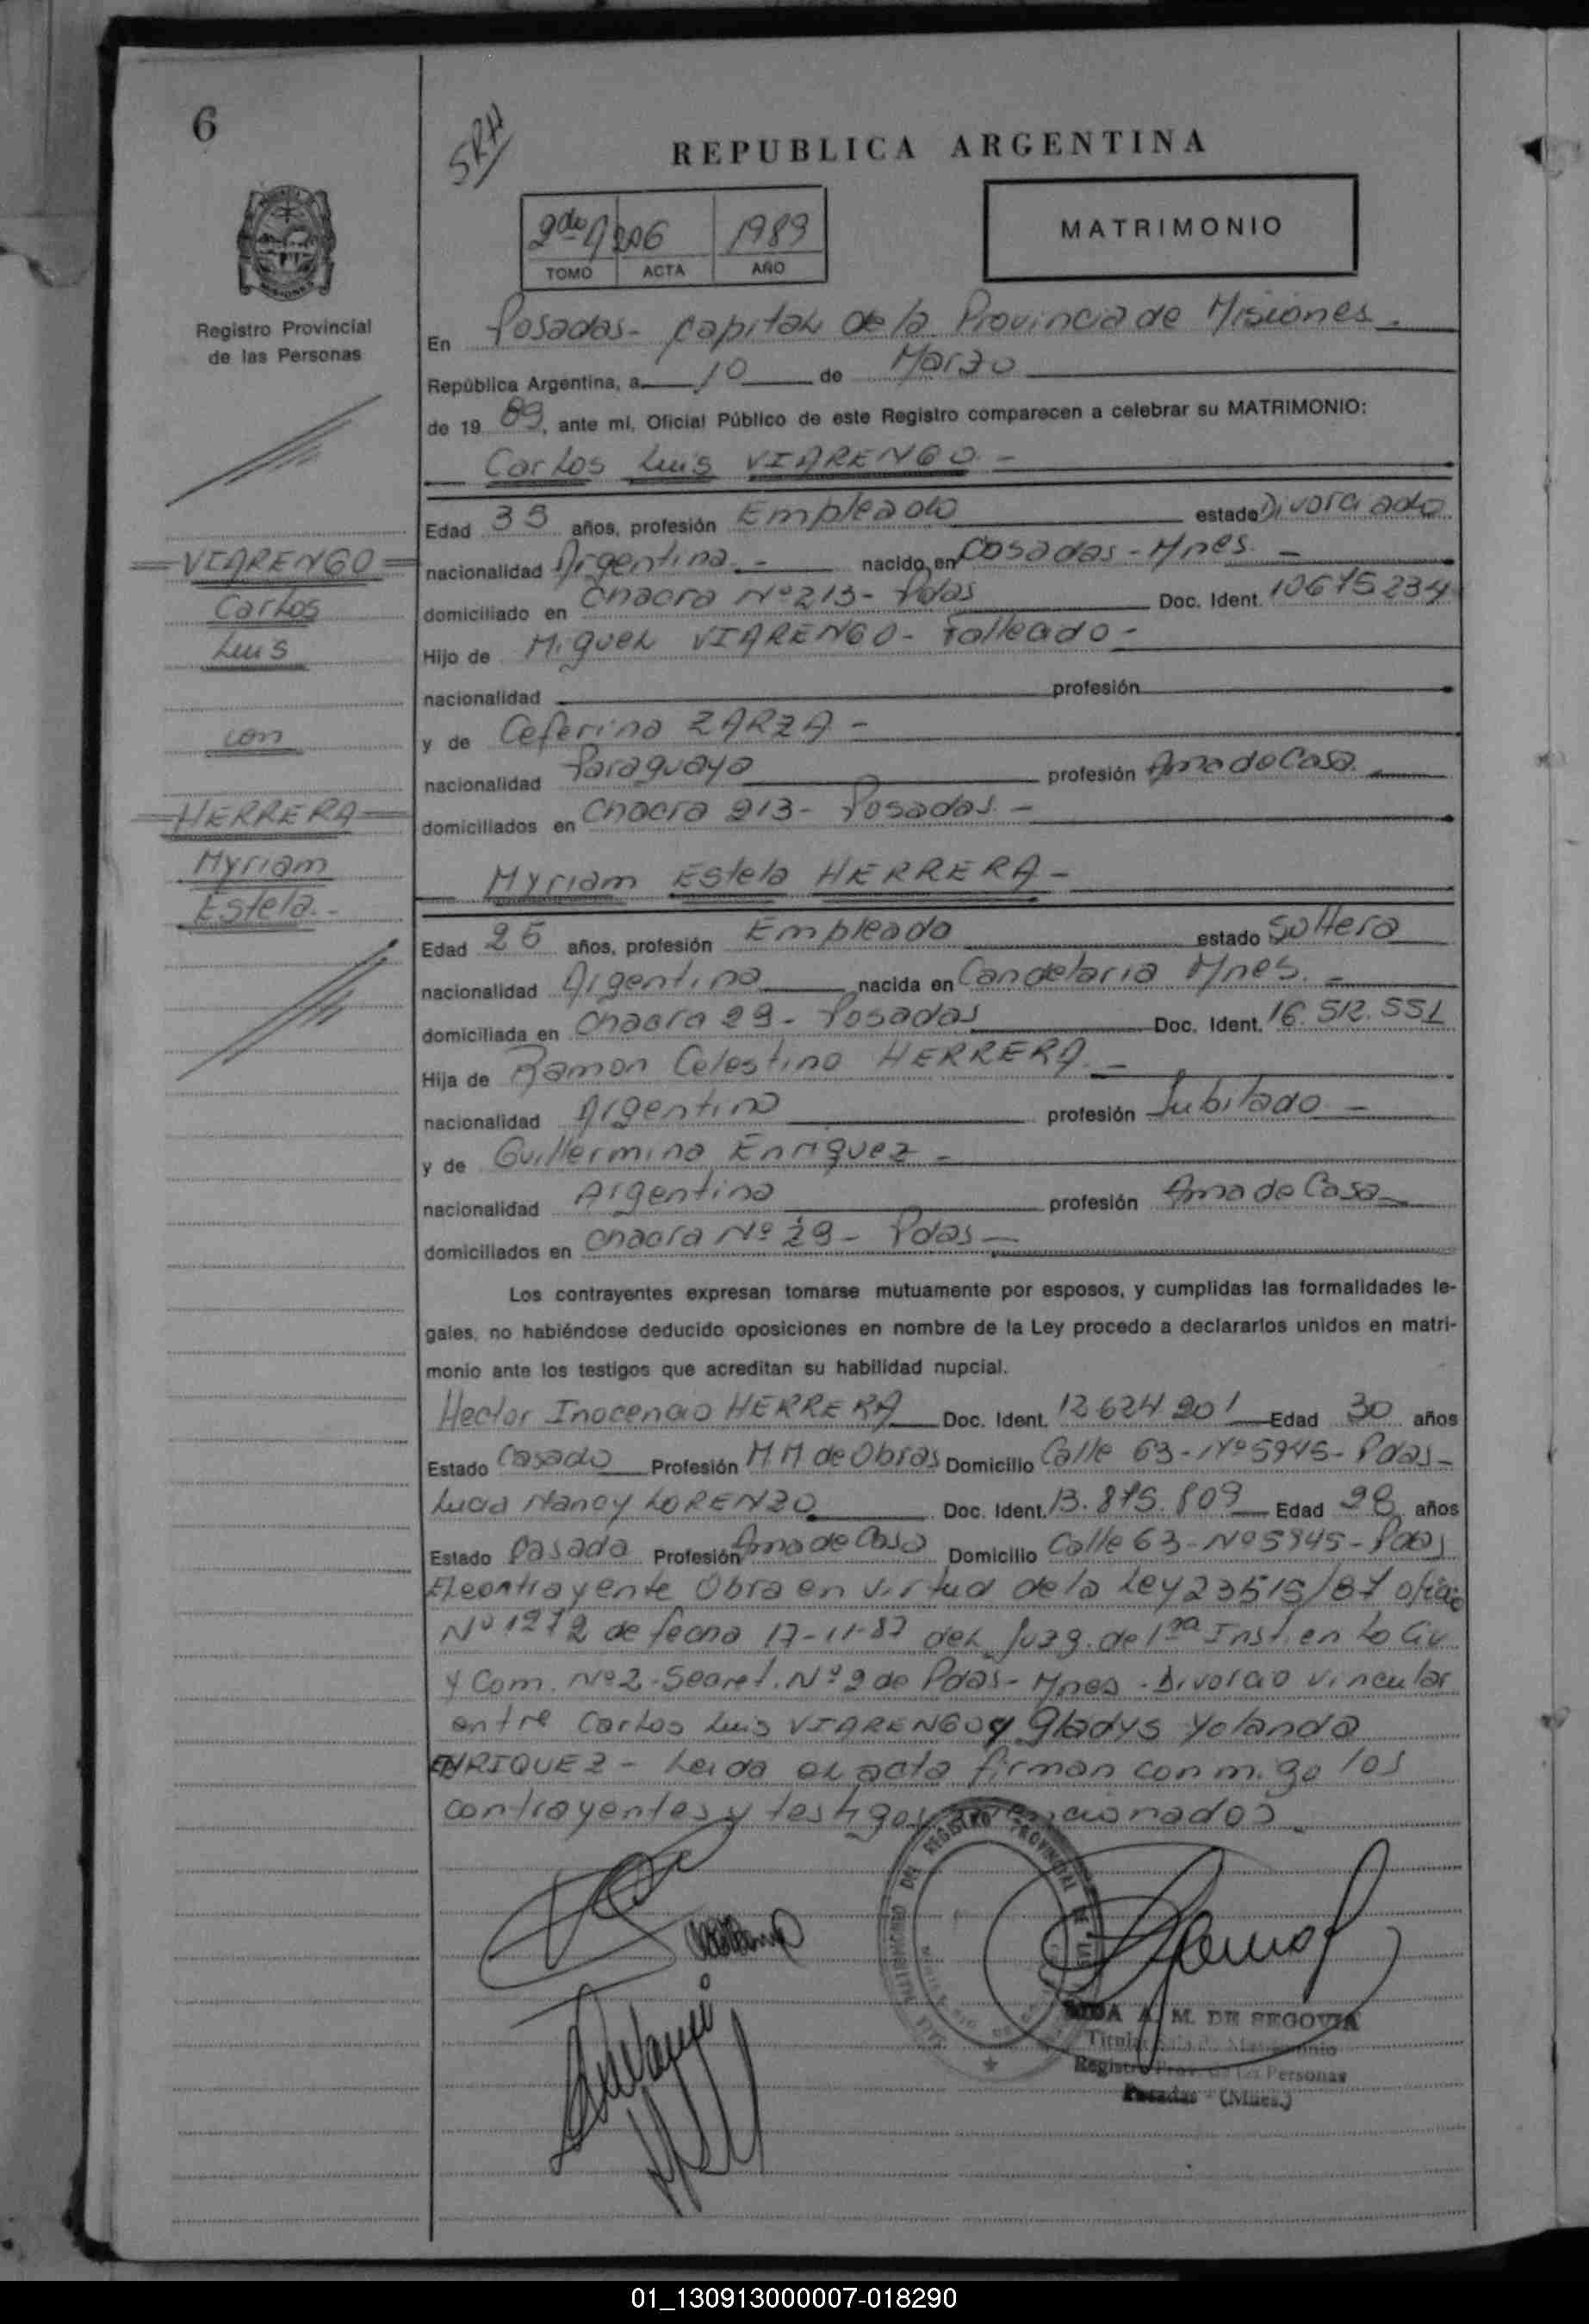 6
SRH
REPUBLICA ARGENTINA
2do 206 1989
TOMO ACTA AÑO
MATRIMONIO
Registro Provincial
de las Personas
En Posadas- capital de la Provincia de Misiones.
República Argentina, a 10 de Marzo
de 19 89, ante mi, Oficial Público de este Registro comparecen a celebrar su MATRIMONIO:
Carlos Luis VIARENGO -
Edad 35 años, profesión Empleado estado Divorciado
VIARENGO
nacionalidad Argentina - nacido en Posadas - Mnes. -
Carlos
domiciliado en Chacra Nº 213 - Pdas Doc. Ident. 10675234
Luis
Hijo de Miguel VIARENGO - Falleado -
nacionalidad profesión
con
y de Ceferina ZARZA -
nacionalidad Paraguaya profesión Ama de Casa
HERRERA
domiciliados en Chacra 213 - Posadas -
Myriam
Myriam Estela HERRERA -
Estela.-
Edad 25 años, profesión Empleada estado Soltera
nacionalidad Argentina nacida en Candelaria Mnes. -
domiciliada en Chacra 29 - Posadas Doc. Ident. 16.512.551
Hija de Ramon Celestino HERRERA -
nacionalidad Argentino profesión Jubilado -
y de Guillermina Enriquez -
nacionalidad Argentina profesión Ama de Casa
domiciliados en Chacra Nº 29 - Pdas -
Los contrayentes expresan tomarse mutuamente por esposos, y cumplidas las formalidades le-
gales, no habiéndose deducido oposiciones en nombre de la Ley procedo a declararlos unidos en matri-
monio ante los testigos que acreditan su habilidad nupcial.
Hector Inocencio HERRERA Doc. Ident. 12 624 201 Edad 30 años
Estado Casado Profesión M.M de Obras Domicilio Calle 63 - Nº 5945 - Pdas -
Lucia Nancy LORENZO Doc. Ident. 13.875.809 Edad 28 años
Estado Casada Profesión Ama de Casa Domicilio Calle 63 - Nº 5945 - Pdas
El contrayente Obra en virtud de la Ley 23515/87 oficio
Nº 1272 de fecha 17-11-87 del Juzg. de 1ra Inst. en lo Civ
y Com. Nº 2 - Secret. Nº 2 de Pdas - Mnes - Divorcio vincular
entre Carlos Luis VIARENGO y Gladys Yolanda
ENRIQUEZ - Leida el acta firman conmigo los
contrayentes y testigos mencionados.
REGISTRO PROVINCIAL DE LAS
A. M. DE SEGOVIA
Titular
Registro Prov. de las Personas
Posadas - (Mnes.)
01_130913000007-018290